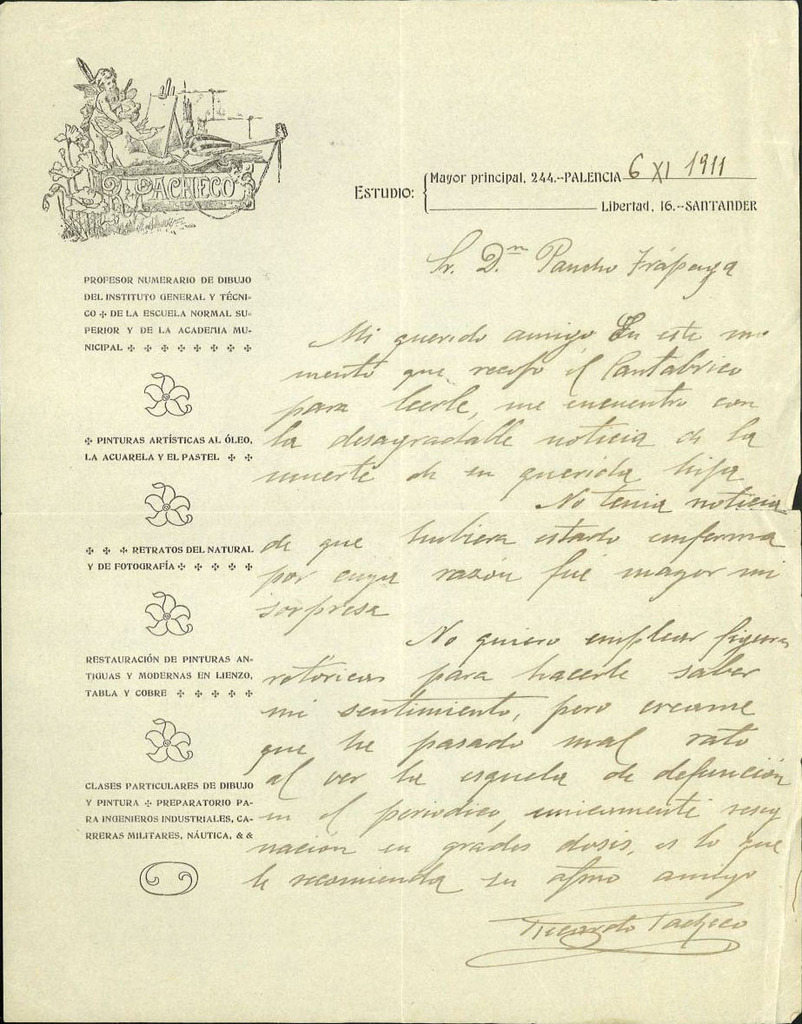 R. PACHECO
ESTUDIO:
Mayor principal, 244.--PALENCIA 6 XI 1911
Libertad, 16.--SANTANDER
PROFESOR NUMERARIO DE DIBUJO
DEL INSTITUTO GENERAL Y TÉCNI-
CO ✢ DE LA ESCUELA NORMAL SU-
PERIOR Y DE LA ACADEMIA MU-
NICIPAL ✢ ✢ ✢ ✢ ✢ ✢ ✢ ✢
✢ PINTURAS ARTÍSTICAS AL ÓLEO,
LA ACUARELA Y EL PASTEL ✢ ✢
✢ ✢ ✢ RETRATOS DEL NATURAL
Y DE FOTOGRAFÍA ✢ ✢ ✢ ✢ ✢
RESTAURACIÓN DE PINTURAS AN-
TIGUAS Y MODERNAS EN LIENZO,
TABLA Y COBRE ✢ ✢ ✢ ✢ ✢
CLASES PARTICULARES DE DIBUJO
Y PINTURA ✢ PREPARATORIO PA-
RA INGENIEROS INDUSTRIALES, CA-
RRERAS MILITARES, NÁUTICA, & &
Sr. Dn Pancho Trápaga
Mi querido amigo En este mo
mento que recojo el Cantabrico
para leerle, me encuentro con
la desagradable noticia de la
muerte de su querida hija
No tenia noticia
de que hubiera estado enferma
por cuya razon fué mayor mi
sorpresa
No quiero emplear figuras
retóricas para hacerle saber
mi sentimiento, pero creame
que he pasado mal rato
al ver la esquela de defunción
en el periodico, unicamente resig
nación en grades dosis, es lo que
le recomienda su afmo amigo
Ricardo Pacheco